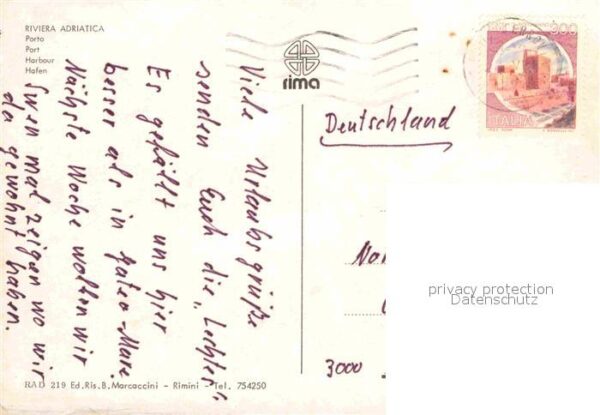 RIVIERA ADRIATICA
Porto
Port
Harbour
Hafen
rima
300
ITALIA
Viele Urlaubsgrüße
senden Euch die „Lechlers"
Es gefällt uns hier
besser als in Gateo-Mare
Nächste Woche wollen wir
Swen mal zeigen wo wir
da gewohnt haben.
Deutschland
3000
privacy protection
Datenschutz
RAD 219 Ed.Ris.B.Marcaccini - Rimini - Tel. 754250